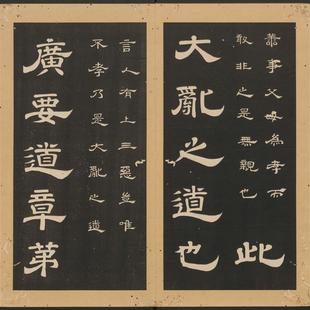 善事父母為孝而
敢非之是無親也
此
大亂之道也
言人有上三惡豈唯
不孝乃是大亂之道
廣要道章第